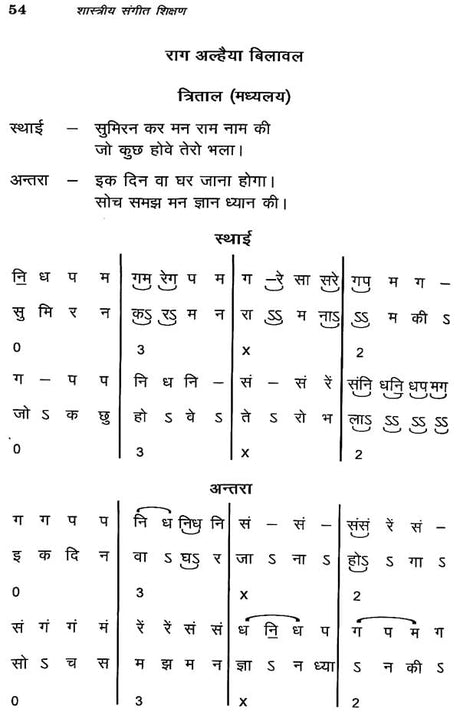 54 शास्त्रीय संगीत शिक्षण
राग अल्हैया बिलावल
त्रिताल (मध्यलय)
स्थाई – सुमिरन कर मन राम नाम की
जो कुछ होवे तेरो भला।
अन्तरा – इक दिन वा घर जाना होगा।
सोच समझ मन ज्ञान ध्यान की।
स्थाई
नि॒ ध प म | गम रेग प म | ग –रे सा सरे | गप म ग –
सु मि र न | कऽ रऽ म न | रा ऽऽ म नाऽ | ऽऽ म की ऽ
0 3 x 2
ग – प प | नि ध नि – | सं – सं रें | संनि धनि॒ धप मग
जो ऽ क छु | हो ऽ वे ऽ | ते ऽ रो भ | लाऽ ऽऽ ऽऽ ऽऽ
0 3 x 2
अन्तरा
ग ग प प | नि ध निध नि | सं – सं – | संसं रें सं –
इ क दि न | वा ऽ घऽ र | जा ऽ ना ऽ | होऽ ऽ गा ऽ
0 3 x 2
सं गं गं मं | रें रें सं सं | ध नि॒ ध प | ग प म ग
सो ऽ च स | म झ म न | ज्ञा ऽ न ध्या | ऽ न की ऽ
0 3 x 2